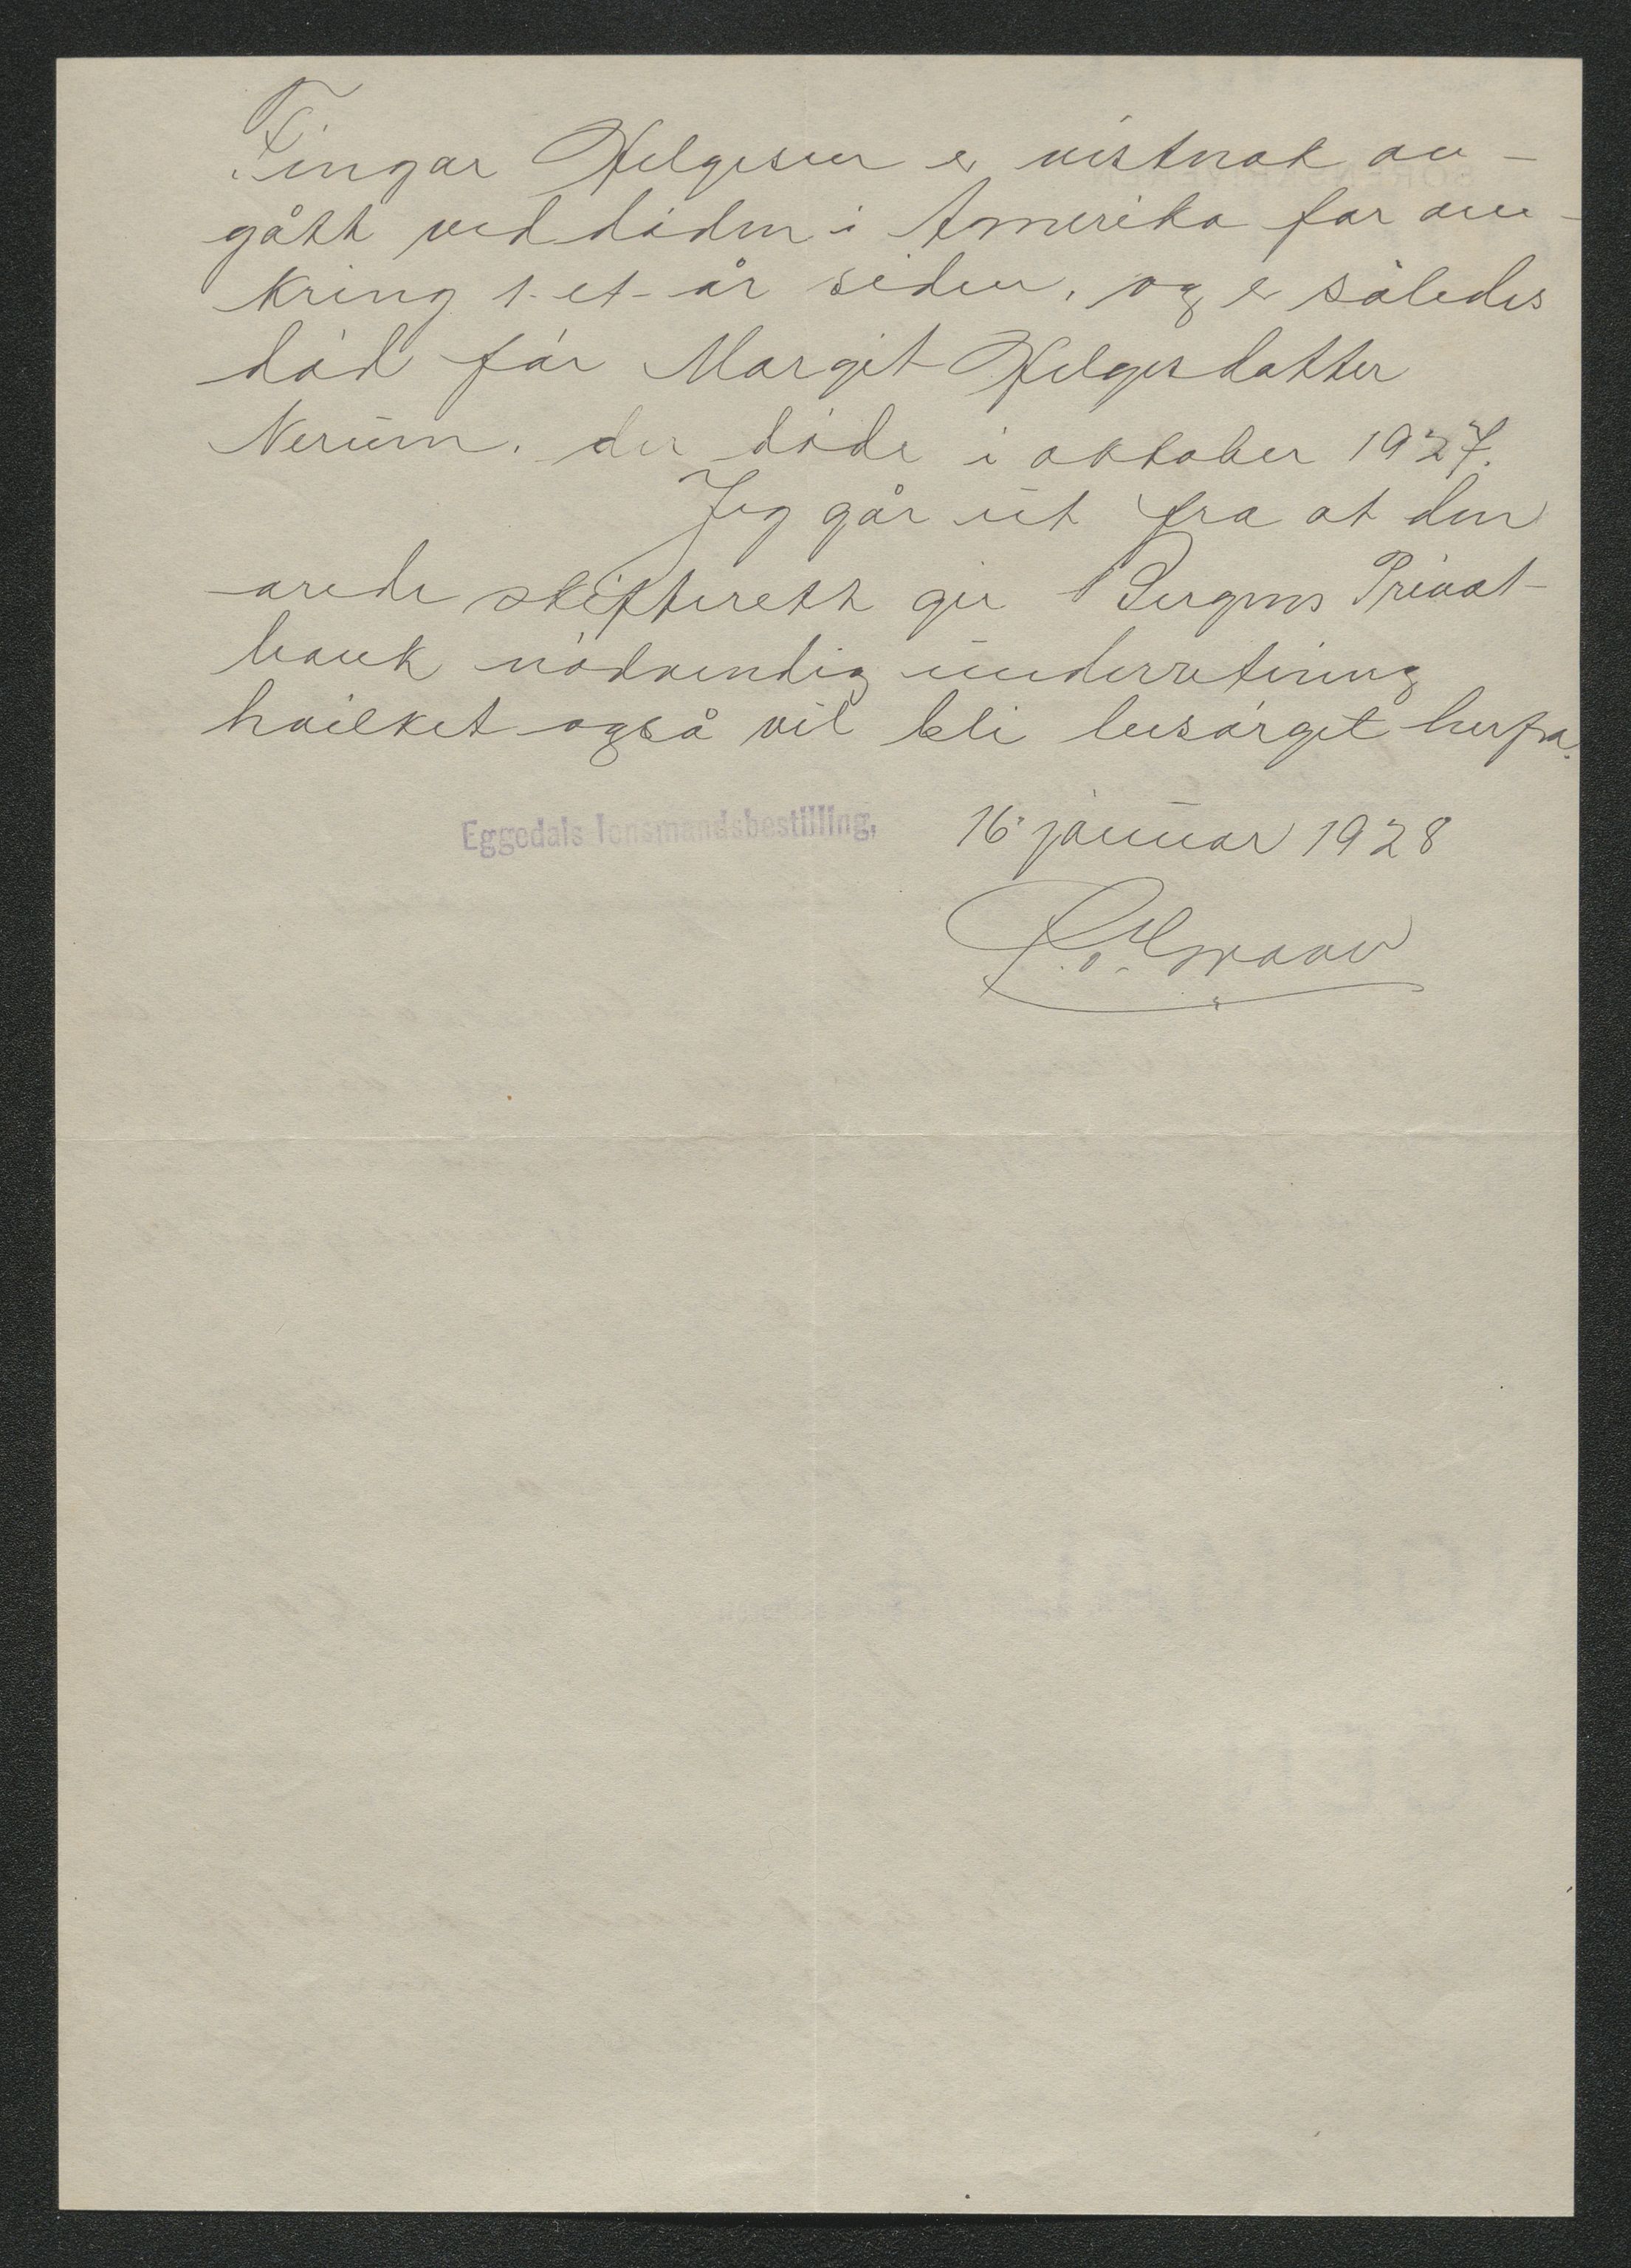 Tingar Helgesen er vistnok av-
gått ved döden i Amerika for om-
kring 1-et-år siden, og er således
död för Margit Helgesdatter
Nerum, der döde i oktober 1927.
Jeg går ut fra at den
ærede skifterett gir Bergens Privat-
bank nödvendig underretning
hvilket også vil bli besörget herfra.
Eggedals lensmandsbestilling, 16 januar 1928